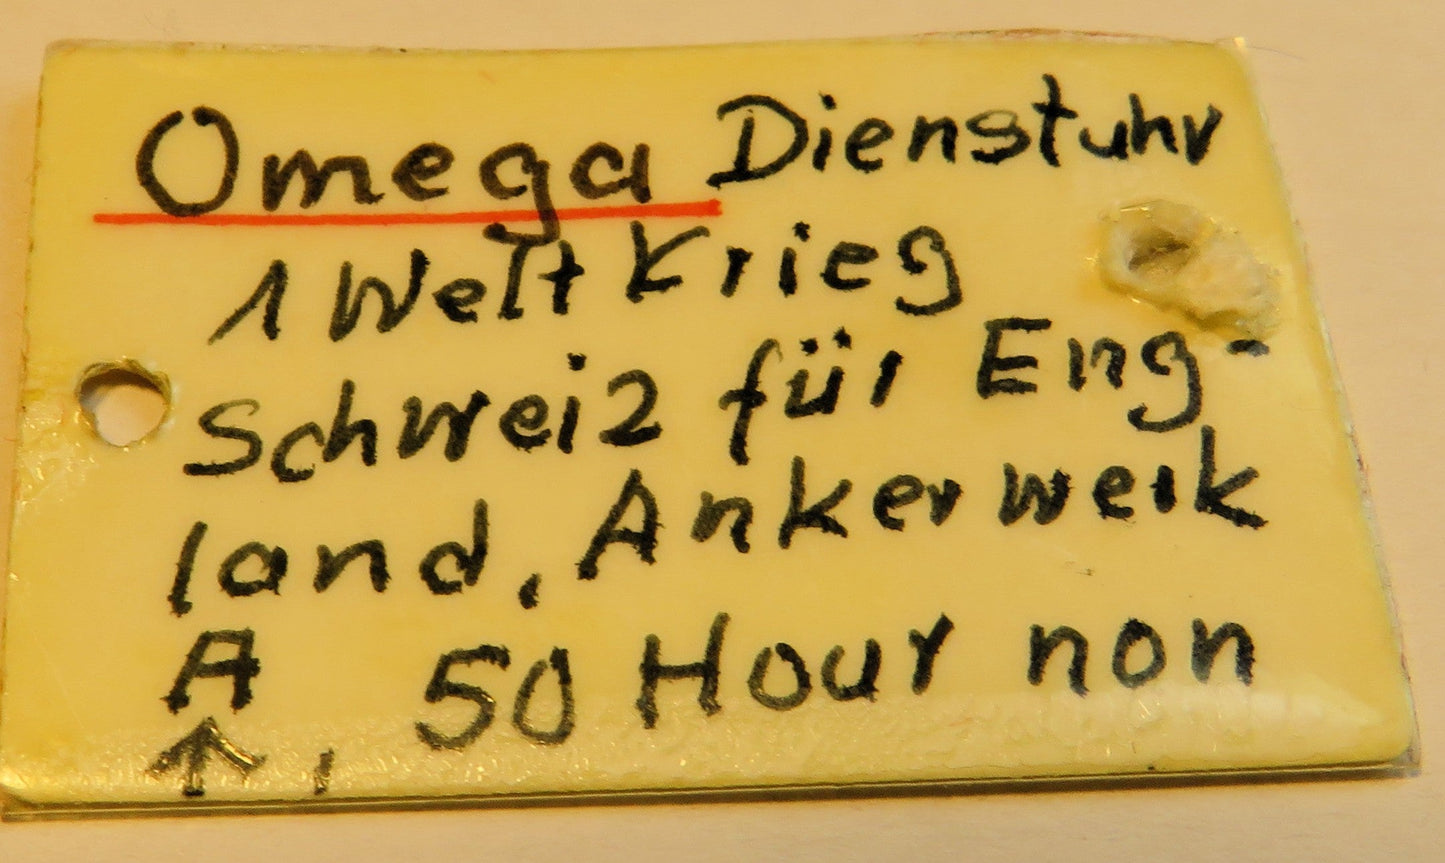 Omega Dienstuhr
1 Weltkrieg
Schweiz für Eng-
land, Ankerwerk
A
↑, 50 Hour non